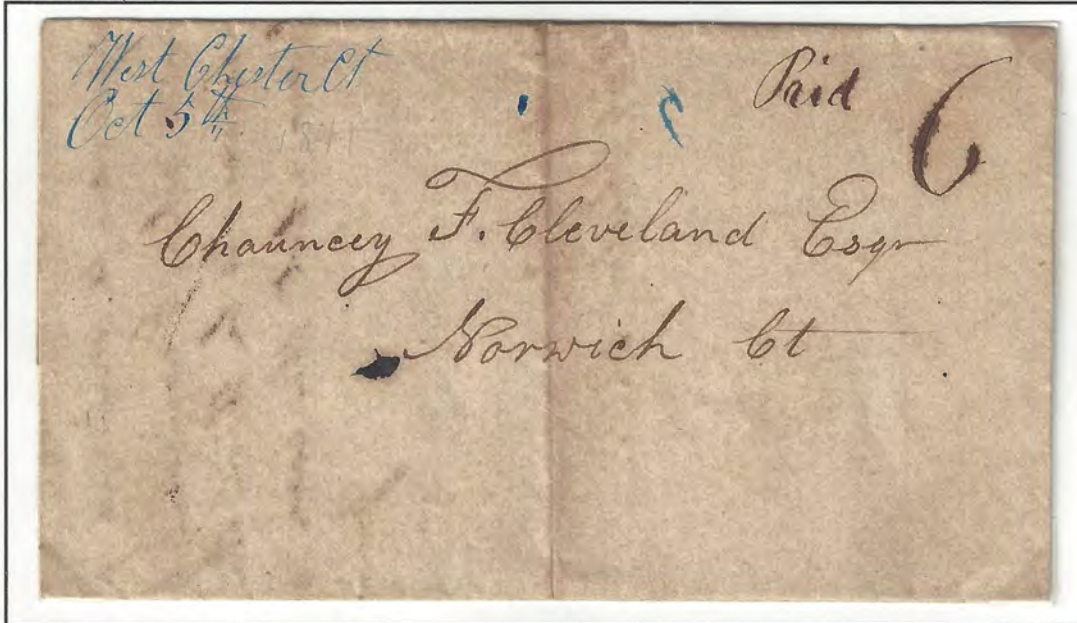 West Chester Ct
Oct 5th 1841
Paid 6
Chauncey F. Cleveland Esqr
Norwich Ct